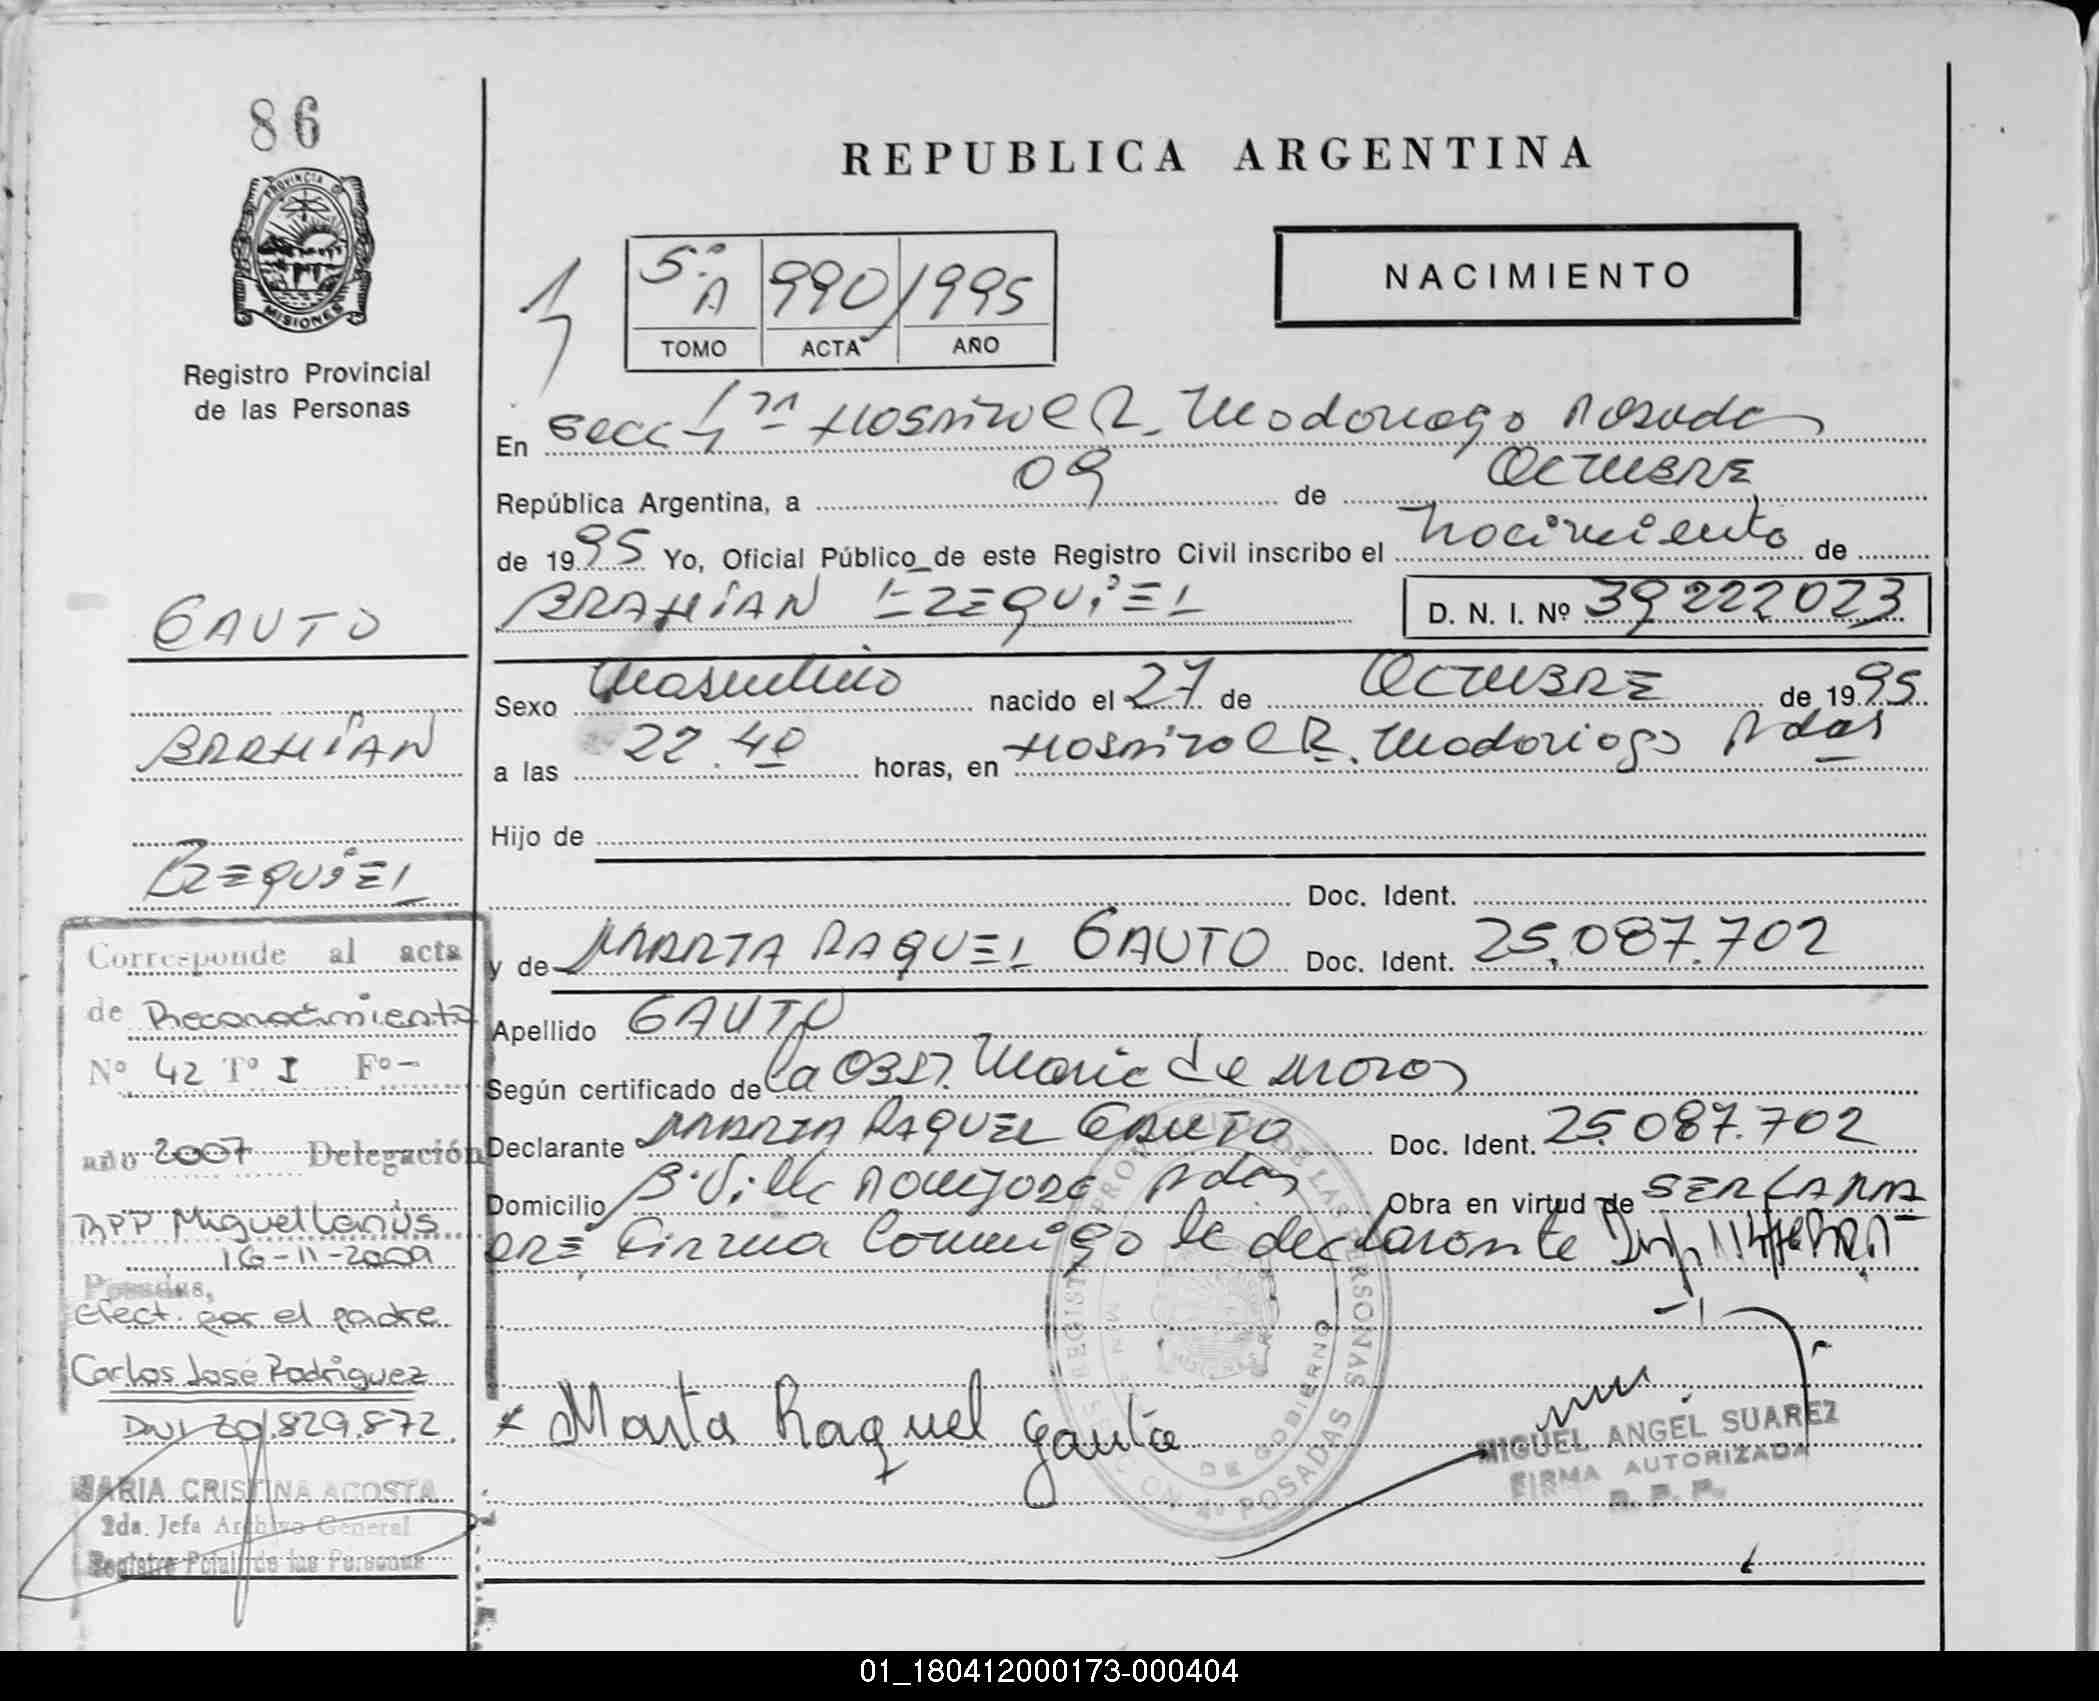 86
REPUBLICA ARGENTINA
PROVINCIA DE
MISIONES
Registro Provincial
de las Personas
5º A 990/1995
TOMO ACTA AÑO
NACIMIENTO
En Secc 1ra Hospital R. Madariaga Posadas
República Argentina, a 09 de OCTUBRE
de 1995 Yo, Oficial Público de este Registro Civil inscribo el nacimiento de
BRAHIAN EZEQUIEL D. N. I. Nº 39222023
GAUTO
BRAHIAN
EZEQUIEL
Sexo Masculino nacido el 27 de OCTUBRE de 1995
a las 22.40 horas, en Hospital R. Madariaga Pdas
Hijo de
Doc. Ident.
y de MARTA RAQUEL GAUTO Doc. Ident. 25.087.702
Apellido GAUTO
Según certificado de la Obst. Maria de
Declarante MARTA RAQUEL GAUTO Doc. Ident. 25.087.702
Domicilio Bº Villa Pdas Obra en virtud de SER LA MA
DRE, Firma conmigo la declarante
Marta Raquel Gauto
MIGUEL ANGEL SUAREZ
FIRMA AUTORIZADA
R. P. P.
Corresponde al acta
de Reconocimiento
Nº 42 Tº I Fº -
año 2007 Delegación
RPP Miguel Lanús
16-11-2009
Posadas,
efect. por el padre
Carlos José Rodriguez
DNI 20.829.872
MARIA CRISTINA ACOSTA
2da. Jefa Archivo General
Registro Pcial. de las Personas
DE LAS PERSONAS
DE GOBIERNO
POSADAS
01_180412000173-000404